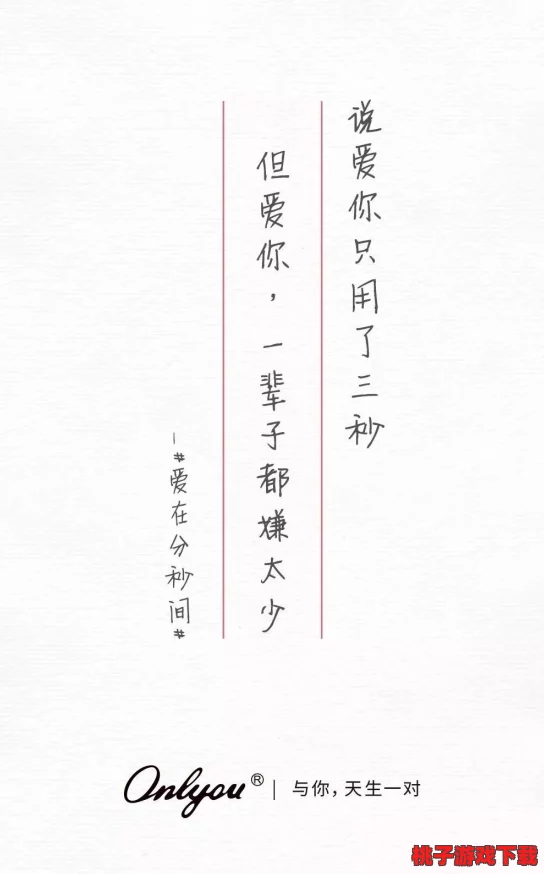 说爱你只用了三秒
但爱你，一辈子都嫌太少
—#爱在分秒间#
Onlyou® | 与你，天生一对
桃子游戏下载